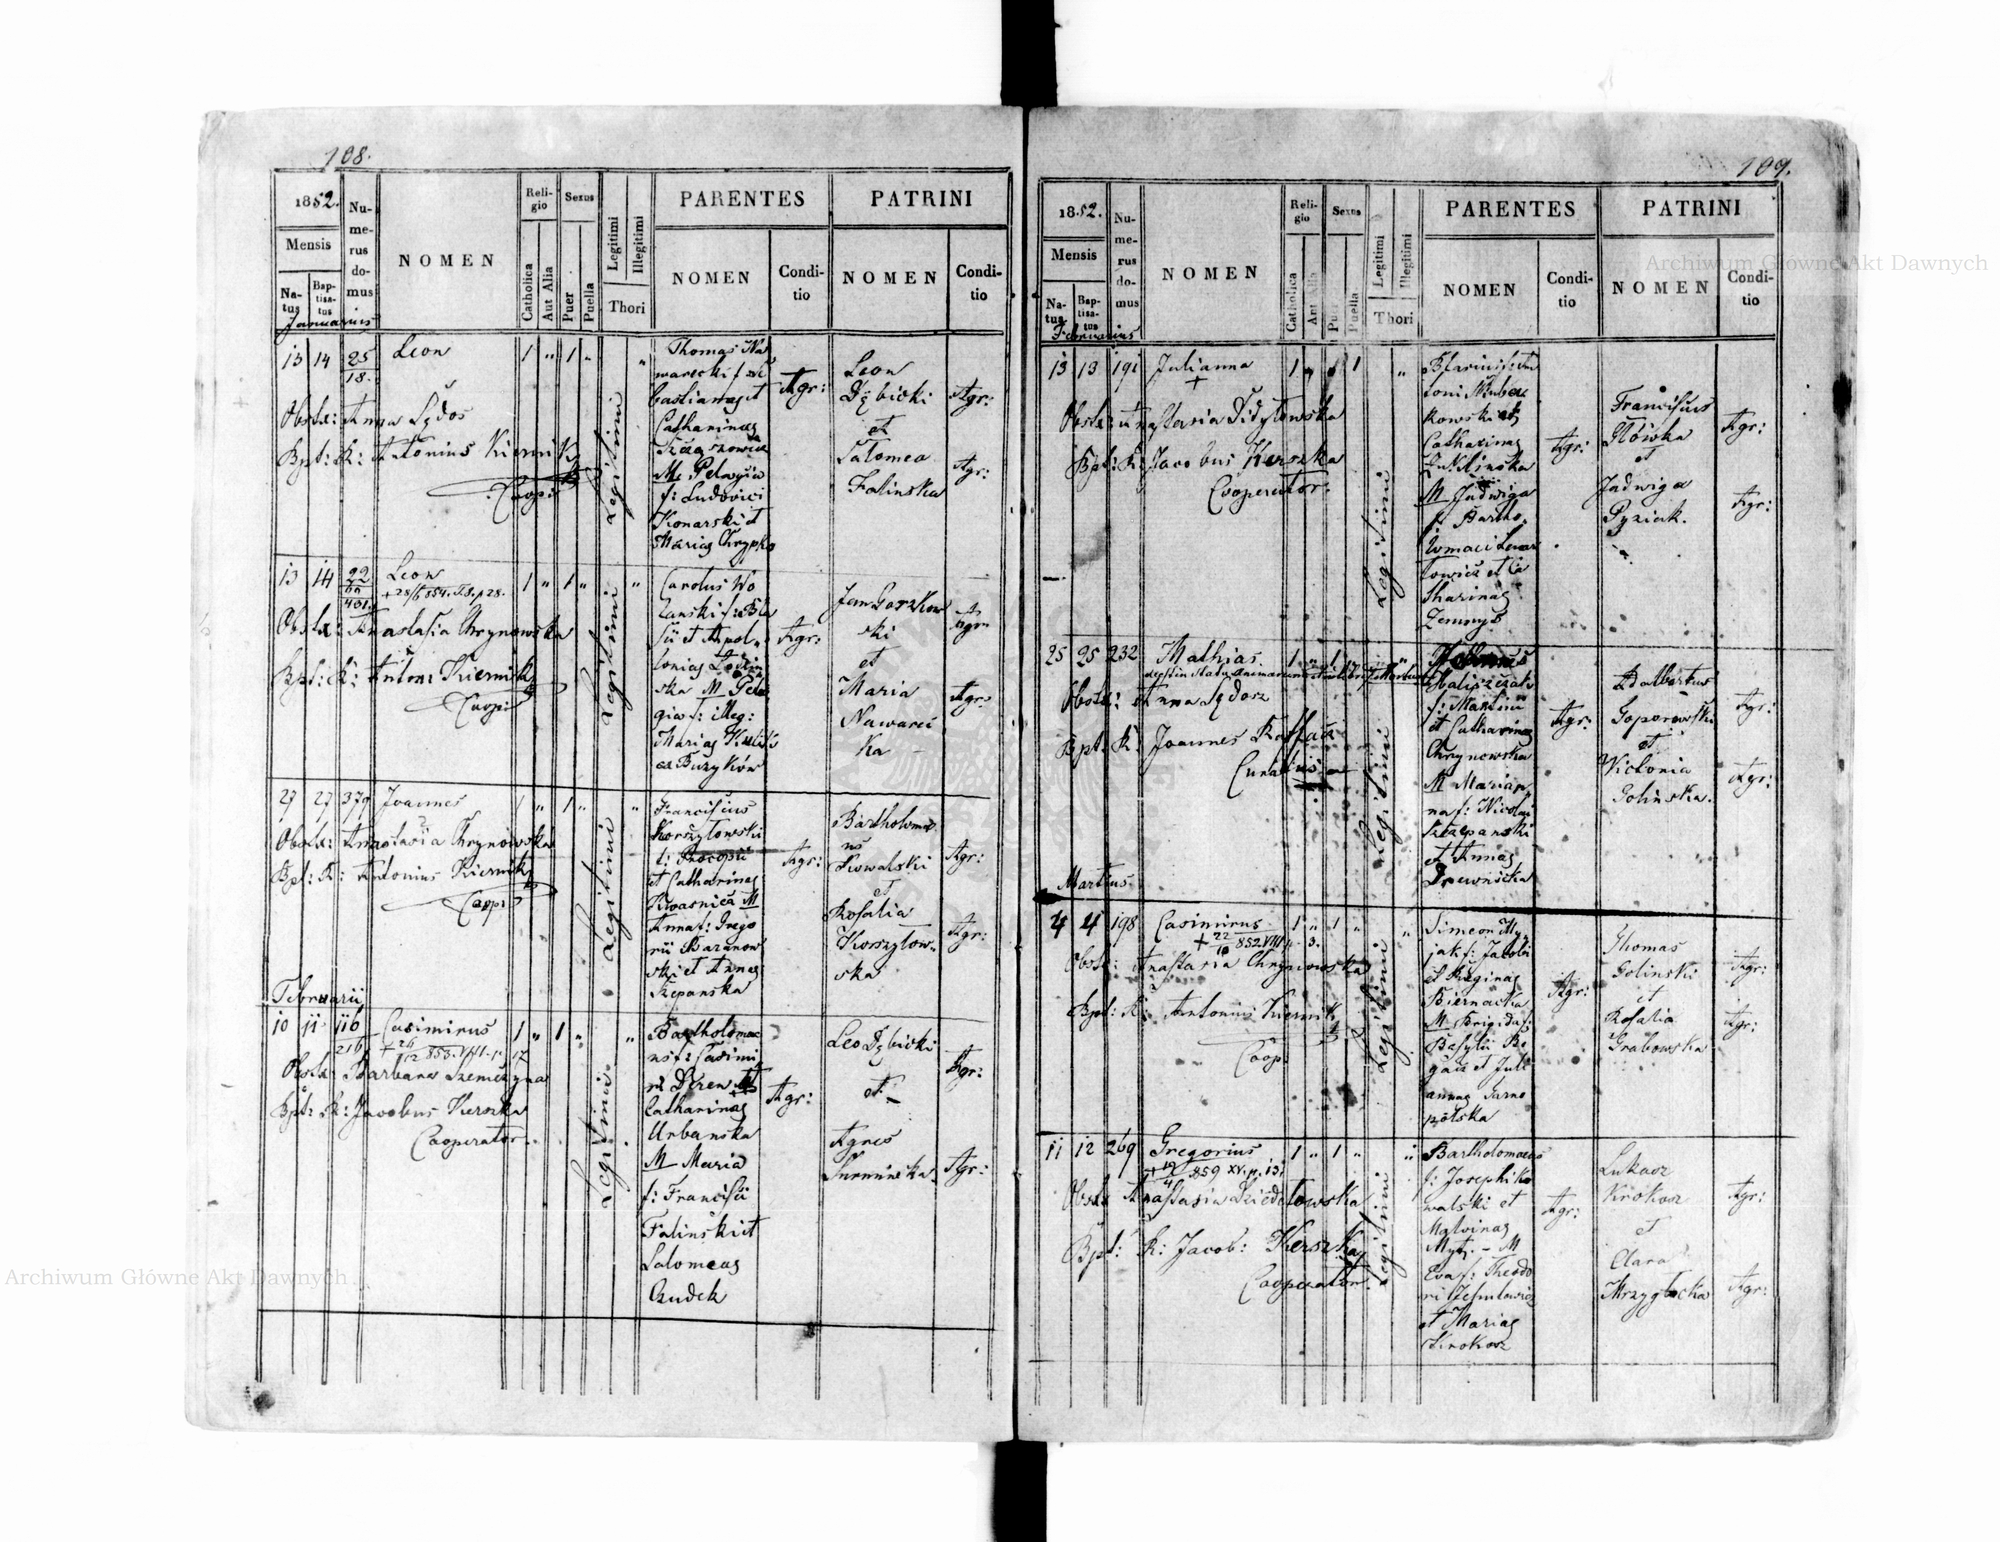 108.
1852.
Mensis
Na-
tus
Bap-
tisa-
tus
Nu-
me-
rus
do-
mus
NOMEN
Reli-
gio
Catholica
Aut Alia
Sexus
Puer
Puella
Legitimi
Illegitimi
Thori
PARENTES
NOMEN
Condi-
tio
PATRINI
NOMEN
Condi-
tio
Januarius
13 14 25
18.
Leon
1 " 1 "
"
Obstx: Anna Lydos
Bpt: R: Antonius Kiernik
Coop:
Legitimi
Thomas Na
warecki f: Se
bastianag et
Catharinag
M Pelagia
f: Ludovici
Konarski et
Mariag Chrypko
Agr:
Leon
Dębicki
et
Salomea
Falinska
Agr:
Agr:
13 14 22
401.
Leon
+ 28/6 854. T.8. p 28.
1 " 1 "
"
Obstx: Anastasia Chrynowska
Bpt: R: Anton: Kiernik
Coop:
Legitimi
Carolus Wo
lanski f: e Bla
sii et Apol-
ska M Pela
gia f: illeg:
Agr:
Jan Gorzkow
ski
et
Maria
Nawarec
ka
Agr:
Agr:
27 27 379
Joannes
1 " 1 "
"
Obstx: Anastasia Chrynowska
Bpt: R: Antonius Kiernik
Coop:
Legitimi
Franciscus
Korszytowski
f: Procopii
et Catharinag
Kwasnica M
Anna f: Grego
rii Baranow
ski et Annag
Szepanska
Agr:
Bartholomae
us
Kowalski
et
Rosalia
Korszylow-
ska
Agr:
Agr:
Februarii
10 11 116
216
Casimirus
+ 26/12 853. VIII. p. 17
1 " 1 "
"
Obstx: Barbara Szemczyna
Bpt: R: Jacobus Kerszka
Cooperator.
Legitimi
Bartholomae
us f: Casimi
ri Deren et
Catharinag
Urbanska
M Maria
f: Francisci
Falinski et
Salomeag
Czudek
Agr:
Leo Dębicki
et
Agnes
Agr:
Agr:
109.
1852.
Mensis
Na-
tus
Bap-
tisa-
tus
Nu-
me-
rus
do-
mus
NOMEN
Reli-
gio
Catholica
Aut Alia
Sexus
Puer
Puella
Legitimi
Illegitimi
Thori
PARENTES
NOMEN
Condi-
tio
PATRINI
NOMEN
Condi-
tio
Februarius
13 13 191
Julianna
+
1 " " 1
"
Obstx: Anastasia Didytowska
Bpt: R: Jacobus Kerszka
Cooperator.
Legitimi
kowski et
Catharinag
Luklinska
M Jadwiga
f: Bartho-
lomaei Lewan
towicz et Ca
tharinag
Agr:
Franciscus
Główka
et
Jadwiga
Pyziak.
Agr:
Agr:
25 25 232
Mathias.
1 " 1
"
Obstx: Anna Lydosz
Bpt: R: Joannes
Curatus
Legitimi
f: Martini
et Catharinag
Chrynowska
M Marian
na f: Nicolai
Szczepanski
et Annag
Drewnicka
Agr:
Adalbertus
Goporowski
et
Victoria
Golinska.
Agr:
Agr:
Martius
4 4 198
Casimirus
+ 22/10 852. VIII p. 3.
1 " 1 "
"
Obstx: Anastasia Chrynowska
Bpt: R: Antonius Kiernik
Coop:
Legitimi
Simeon My-
jak f: Jacobi
et Reginag
Biernacka
M Brigida f:
Basylii Bo
gacz et Juli
annag Tarno
polska
Agr:
Thomas
Golinski
et
Rosalia
Grabowska
Agr:
Agr:
11 12 269
Gregorius
+ 19/4 859 XV. p. 13.
1 " 1 "
"
Obstx: Anastasia Dziedztowska
Bpt: R: Jacob: Kerszka
Cooperator.
Legitimi
Bartholomaeus
f: Josephi Ko
walski et
M
Eva f: Theodo
et Mariag
Krokosz
Agr:
Lukasz
Krokosz
et
Clara
Mrzygłocka
Agr:
Agr:
Archiwum Główne Akt Dawnych
Archiwum Główne Akt Dawnych